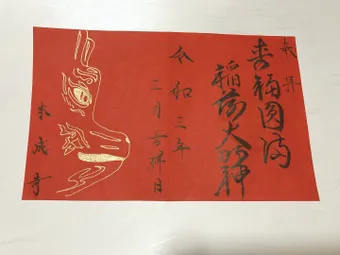 奉拝
喜福圓満
稲荷大明神
令和三年
二月吉祥日
本成寺